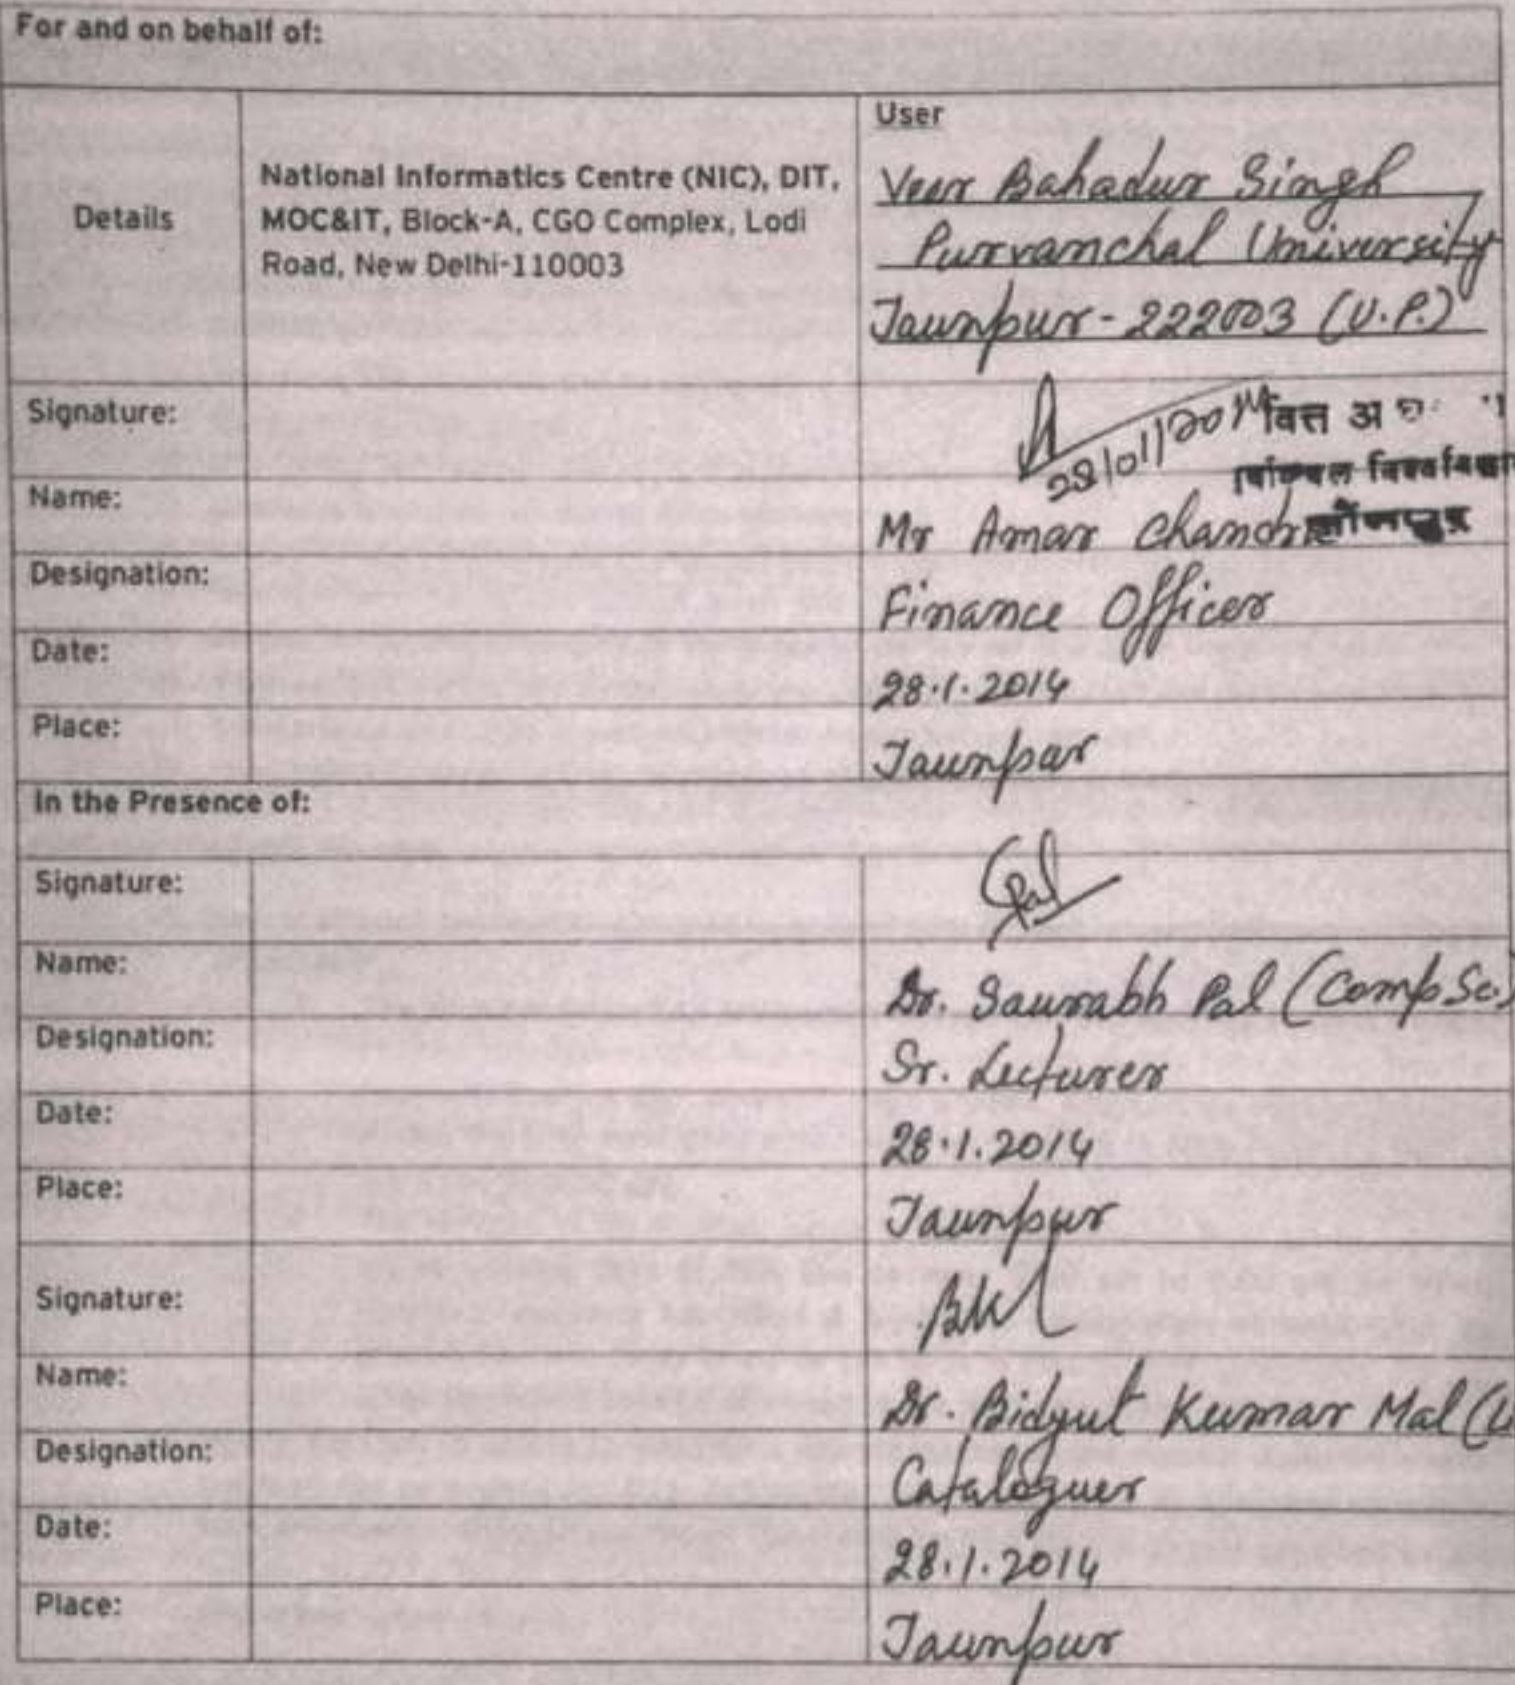 For and on behalf of:
Details
National Informatics Centre (NIC), DIT,
MOC&IT, Block-A, CGO Complex, Lodi
Road, New Delhi-110003
User
Veer Bahadur Singh
Purvanchal University
Jaunpur - 222003 (U.P.)
Signature:
28/01/2014
वित्त
Name:
Mr Amar Chandra
Designation:
Finance Officer
Date:
28.1.2014
Place:
Jaunpur
In the Presence of:
Signature:
Pal
Name:
Dr. Saurabh Pal (Comp Sc.)
Designation:
Sr. Lecturer
Date:
28.1.2014
Place:
Jaunpur
Signature:
Name:
Dr. Bidyut Kumar Mal
Designation:
Cataloguer
Date:
28.1.2014
Place:
Jaunpur